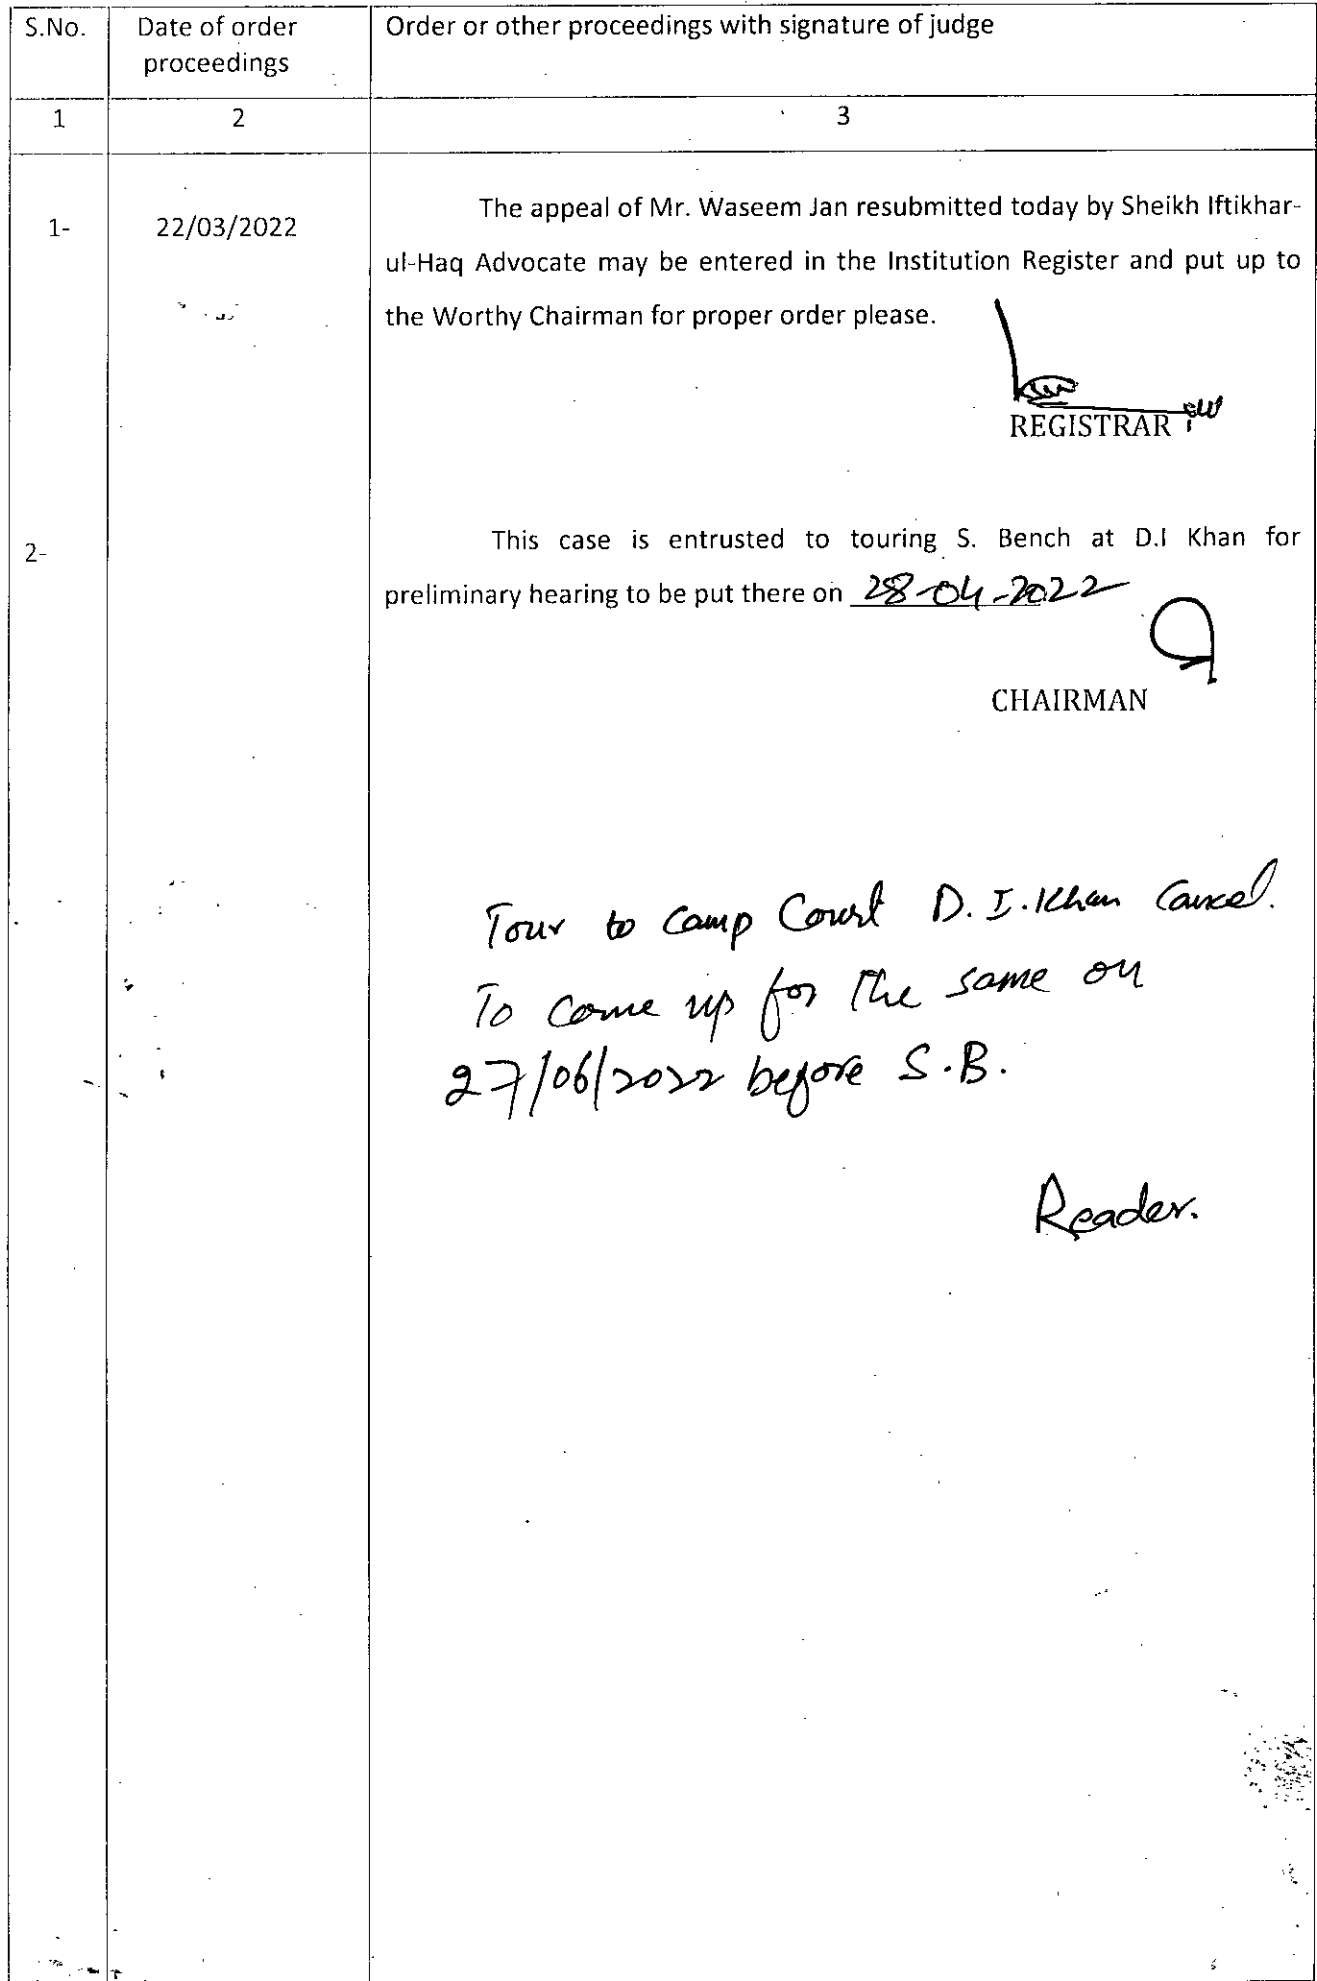 S.No.
Date of order
proceedings
Order or other proceedings with signature of judge
1
2
3
1-
22/03/2022
The appeal of Mr. Waseem Jan resubmitted today by Sheikh Iftikhar-
ul-Haq Advocate may be entered in the Institution Register and put up to
the Worthy Chairman for proper order please.
REGISTRAR
2-
This case is entrusted to touring S. Bench at D.I Khan for
preliminary hearing to be put there on 28-04-2022
CHAIRMAN
Tour to Camp Court D.I.Khan Cancel.
To come up for the same on
27/06/2022 before S.B.
Reader.